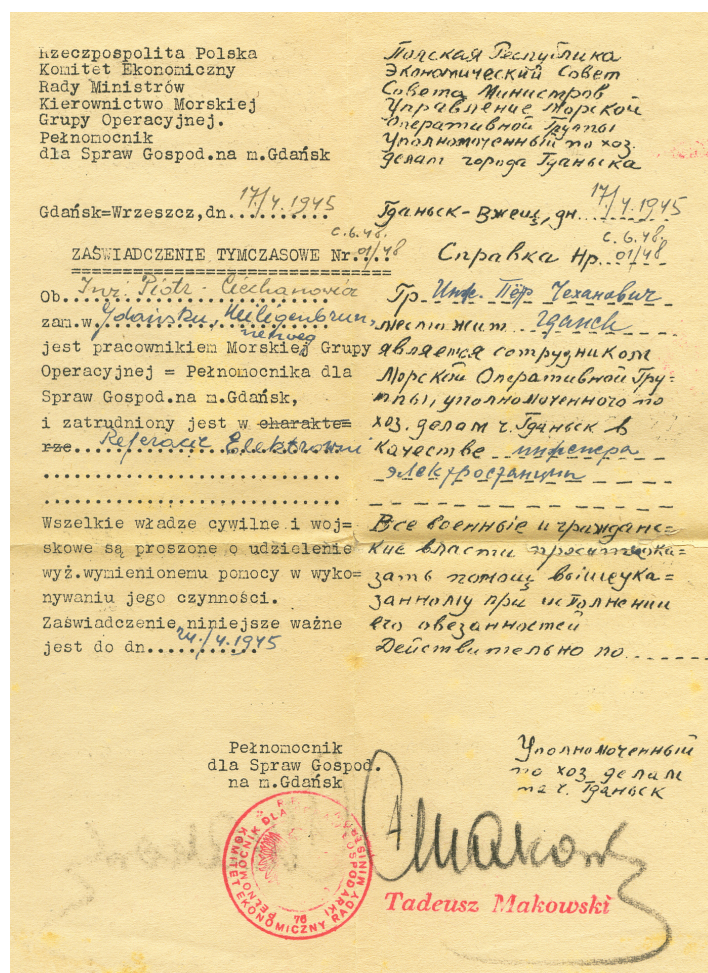 Rzeczpospolita Polska
Komitet Ekonomiczny
Rady Ministrów
Kierownictwo Morskiej
Grupy Operacyjnej.
Pełnomocnik
dla Spraw Gospod.na m.Gdańsk
Gdańsk=Wrzeszcz,dn. 17./4.1945
C.6.48.
ZAŚWIADCZENIE TYMCZASOWE Nr. 01/48
Ob. Inż. Piotr - Ciechanowicz
zam.w. Gdańsku, Heiligenbrun
jest pracownikiem Morskiej Grupy
Operacyjnej = Pełnomocnika dla
Spraw Gospod.na m.Gdańsk,
i zatrudniony jest w charakte=
rze. Referacie Elektrowni
Wszelkie władze cywilne i woj=
skowe są proszone o udzielenie
wyż.wymienionemu pomocy w wyko=
nywaniu jego czynności.
Zaświadczenie niniejsze ważne
jest do dn. /4.1945
Польская Республика
Экономический Совет
Совета Министров
Управление Морской
Оперативной Группы
Уполномоченный по хоз.
делам города Гданьска
Гданьск-Вжещ, дн. 17./4.1945
C.6.48.
Справка Нр. 01/48
Гр. Инж. Пётр Чеханович
место жит. Гданск
является сотрудником
Морской Оперативной Гру=
ппы, уполномоченного по
хоз. делам г. Гданьск в
качестве инженера
электростанции
Все военные и граждане=
кие власти просит ока=
зать помощ вышеука=
занному при исполнении
его овезанностей
Действительно по
Pełnomocnik
dla Spraw Gospod.
na m.Gdańsk
Уполномоченный
по хоз делам
на г. Гданьск
PEŁNOMOCNIK DLA GOSPODARKI
KOMITET EKONOMICZNY RADY MINISTR
76
Makowski
Tadeusz Makowski